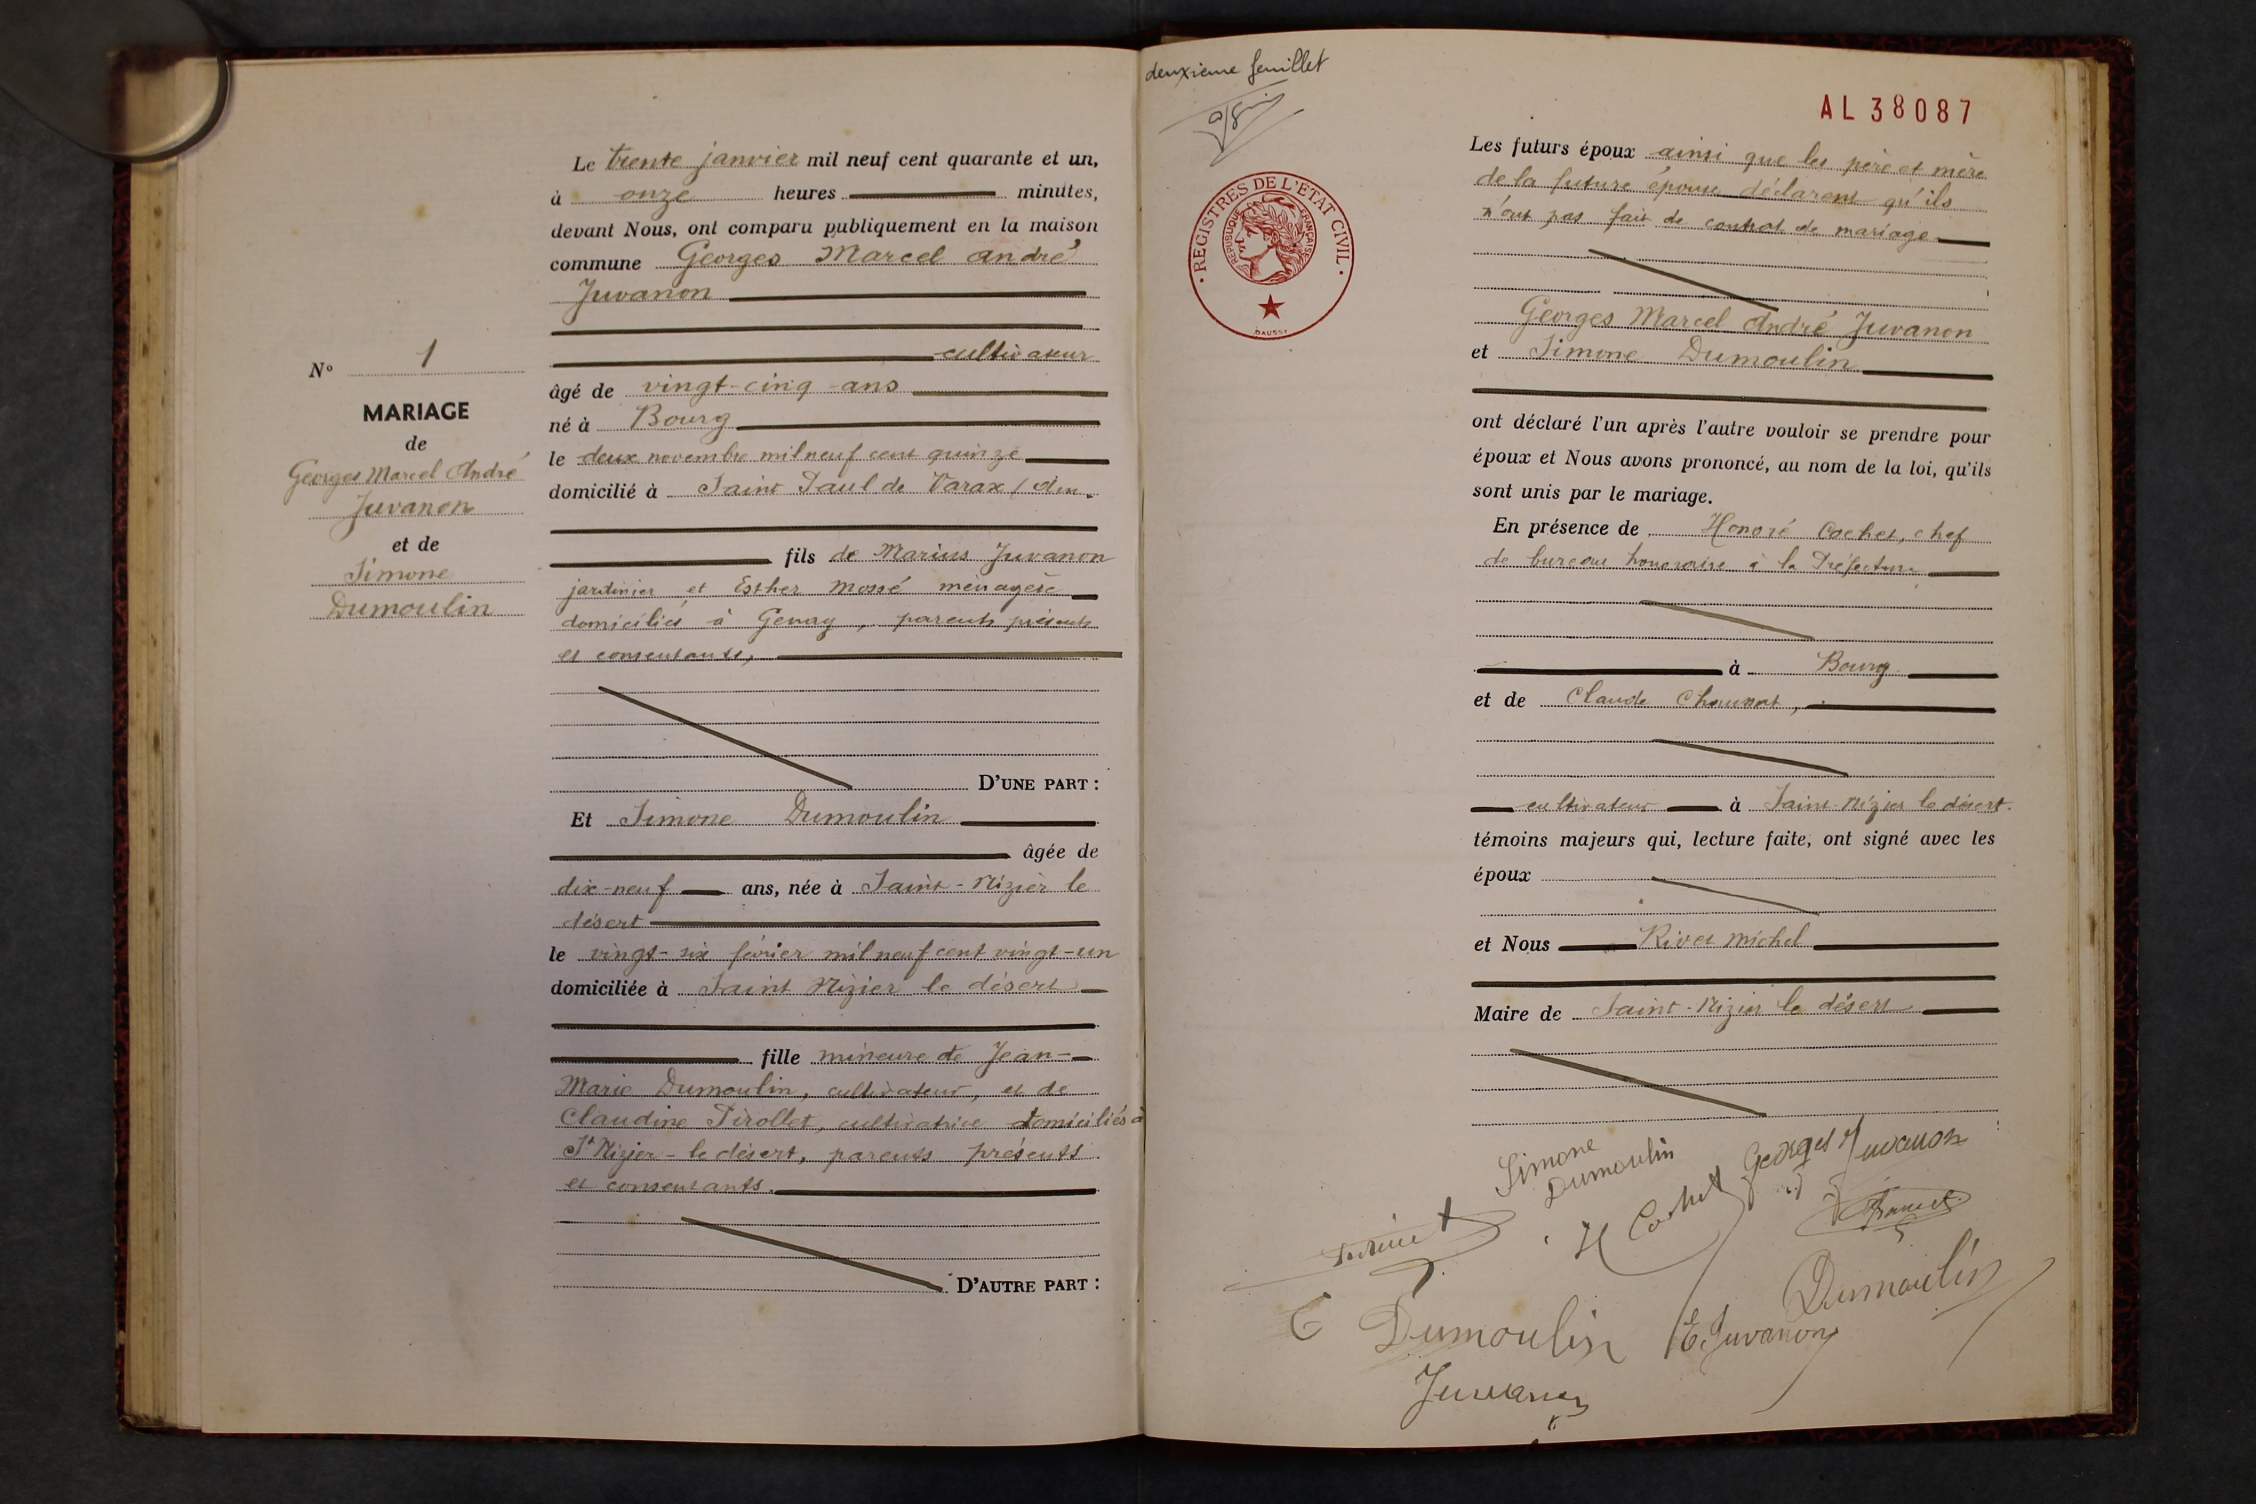 N° 1
MARIAGE
de
Georges Marcel André
Juvanon
et de
Simone
Dumoulin
Le trente janvier mil neuf cent quarante et un,
à onze heures minutes,
devant Nous, ont comparu publiquement en la maison
commune Georges Marcel André
Juvanon
cultivateur
âgé de vingt-cinq ans
né à Bourg
le deux novembre mil neuf cent quinze
domicilié à Saint Paul de Varax (Ain
fils de Marius Juvanon
jardinier et Esther Mossé ménagère
domiciliés à Genay, parents présents
et consentants,
D'UNE PART :
Et Simone Dumoulin
âgée de
dix-neuf ans, née à Saint-Nizier le
désert
le vingt-six février mil neuf cent vingt-un
domiciliée à Saint Nizier le désert
fille mineure de Jean-
Marie Dumoulin, cultivateur, et de
Claudine Pirollet, cultivatrice domiciliés à
St Nizier-le désert, parents présents
et consentants.
D'AUTRE PART :
deuxième feuillet
REGISTRES DE L'ETAT CIVIL
REPUBLIQUE FRANÇAISE
DAUSSY
AL 38087
Les futurs époux ainsi que les père et mère
de la future épouse déclarent qu'ils
n'ont pas fait de contrat de mariage
Georges Marcel André Juvanon
et Simone Dumoulin
ont déclaré l'un après l'autre vouloir se prendre pour
époux et Nous avons prononcé, au nom de la loi, qu'ils
sont unis par le mariage.
En présence de Honoré Cochet, chef
de bureau honoraire à la Préfecture
à Bourg
et de Claude
cultivateur à Saint-Nizier le désert.
témoins majeurs qui, lecture faite, ont signé avec les
époux
et Nous Rivet Michel
Maire de Saint-Nizier le désert
Simone
Dumoulin
Georges Juvanon
H Cochet
Dumoulin
C Dumoulin
E. Juvanon
Juvanon